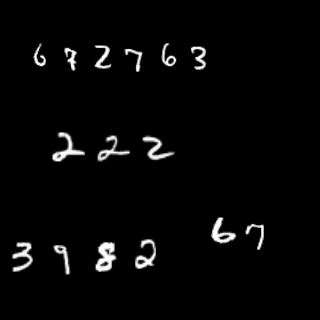 672763
222
3982 67